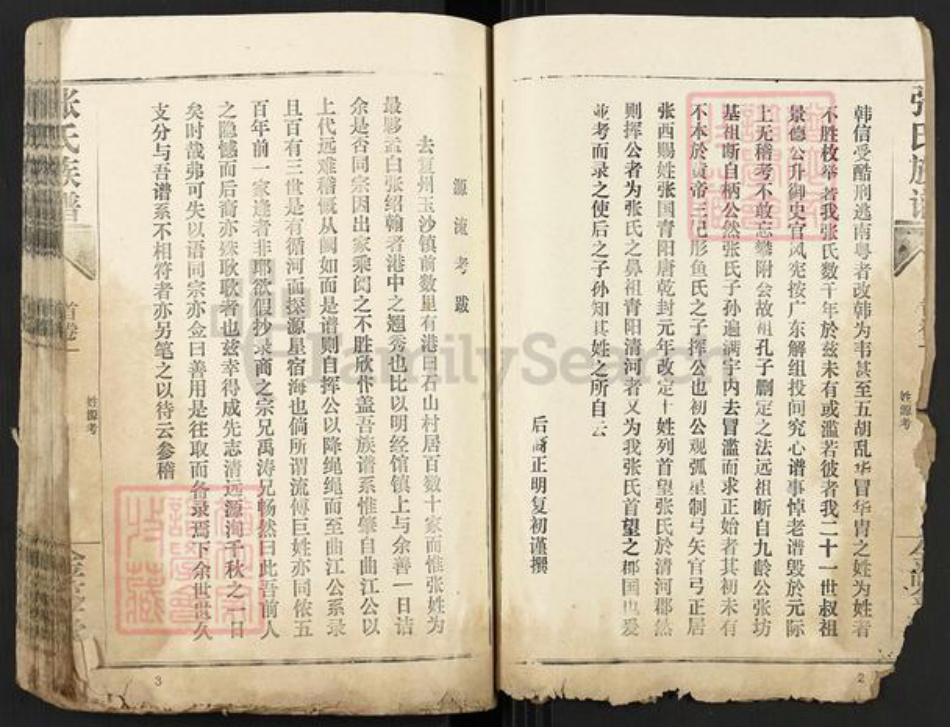 张氏族谱
首卷一
姓源考
2
韩信受酷刑逃南粤者改韩为韦甚至五胡乱华冒华胄之姓为姓者
不胜枚举者我张氏数千年於兹未有或滥若彼者我二十一世叔祖
景德公升御史官风宪按广东解组投间究心谱事悼老谱毁於元际
上无稽考不敢忘攀附会故祖孔子删定之法远祖断自九龄公张坊
基祖断自柄公然张氏子孙遍满宇内去冒滥而求正始者其初未有
不本於黄帝三妃彤鱼氏之子挥公也初公观弧星制弓矢官弓正居
张西赐姓张国青阳唐乾封元年改定十姓列首望张氏於清河郡然
则挥公者为张氏之鼻祖青阳清河者又为我张氏首望之郡国也爰
并考而录之使后之子孙知其姓之所自云
后裔正明复初谨撰
源流考跋
去复州玉沙镇前数里有港曰石山村居百数十家而惟张姓为
最夥孟白张绍翰者港中之翘秀也比以明经馆镇上与余善一日诘
余是否同宗余因出家乘阅之不胜欣忭盖吾族谱系惟肇自曲江公以
上代远难稽慨从阙如而是谱则自挥公以降绳绳而至曲江公系录
且百有三世是有循河而探源星宿海也倘所谓流傅巨姓亦同侬五
百年前一家逢者非耶欲假抄录商之宗兄禹涛兄畅然曰此吾前人
之隐憾而后裔亦殊耿耿者也兹幸得成先志清远源洵千秋之一日
矣时哉弗可失以语同宗亦佥曰善用是往取而备录焉下余世世久
支分与吾谱系不相符者亦另笔之以待云参稽
张氏族谱
首卷一
姓源考
3
FamilySearch